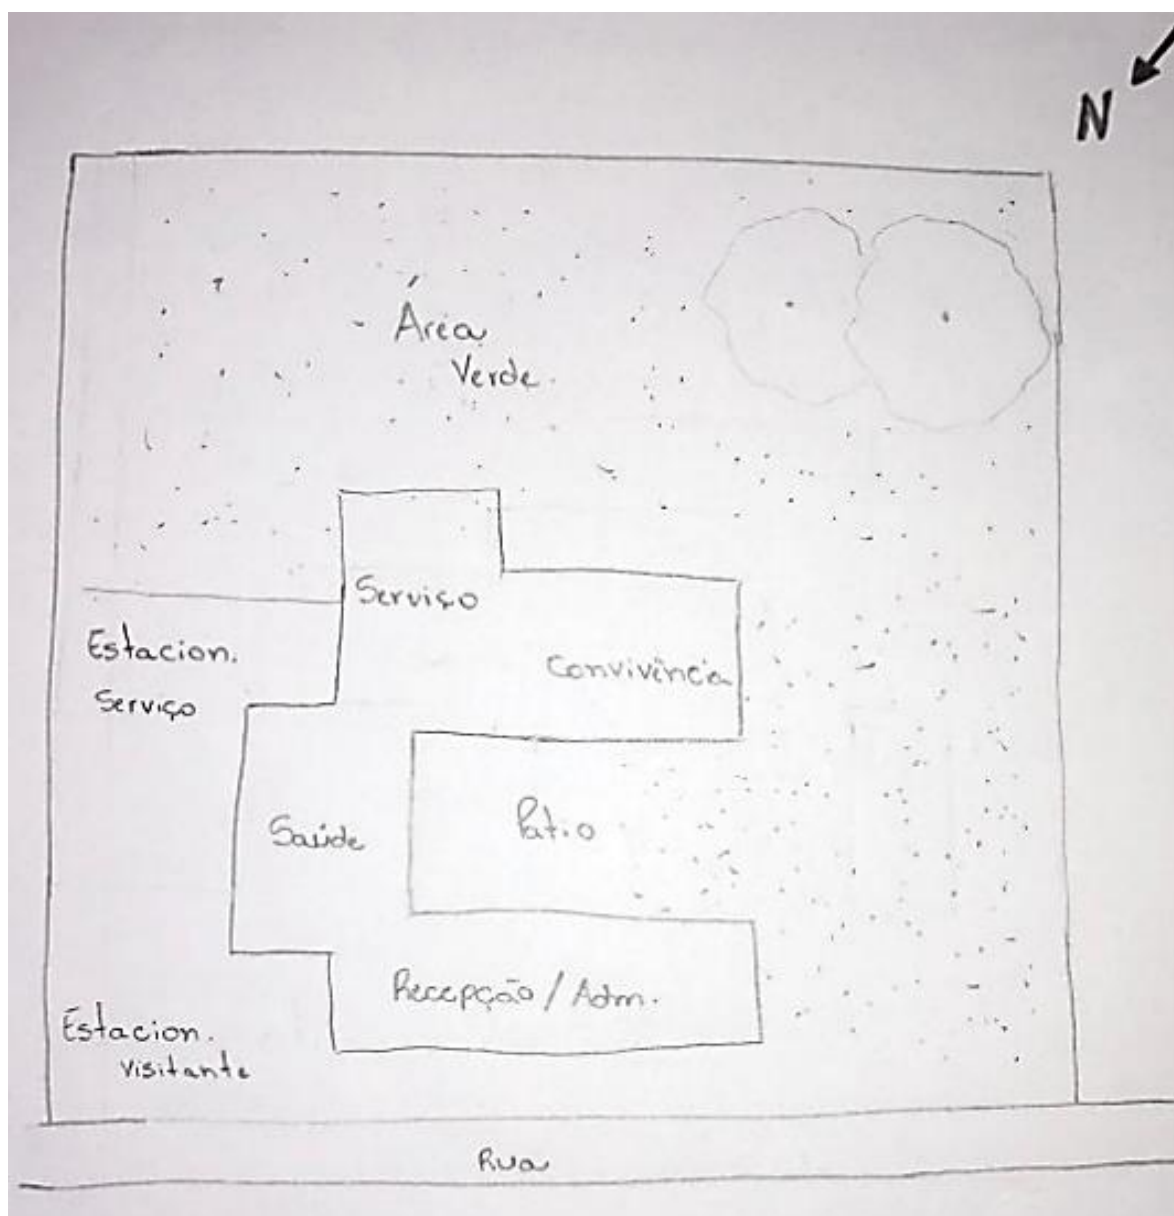 N
Área
Verde.
Serviço
Estacion.
Serviço
Convivência
Saúde
Patio
Recepção / Adm.
Estacion.
Visitante
Rua